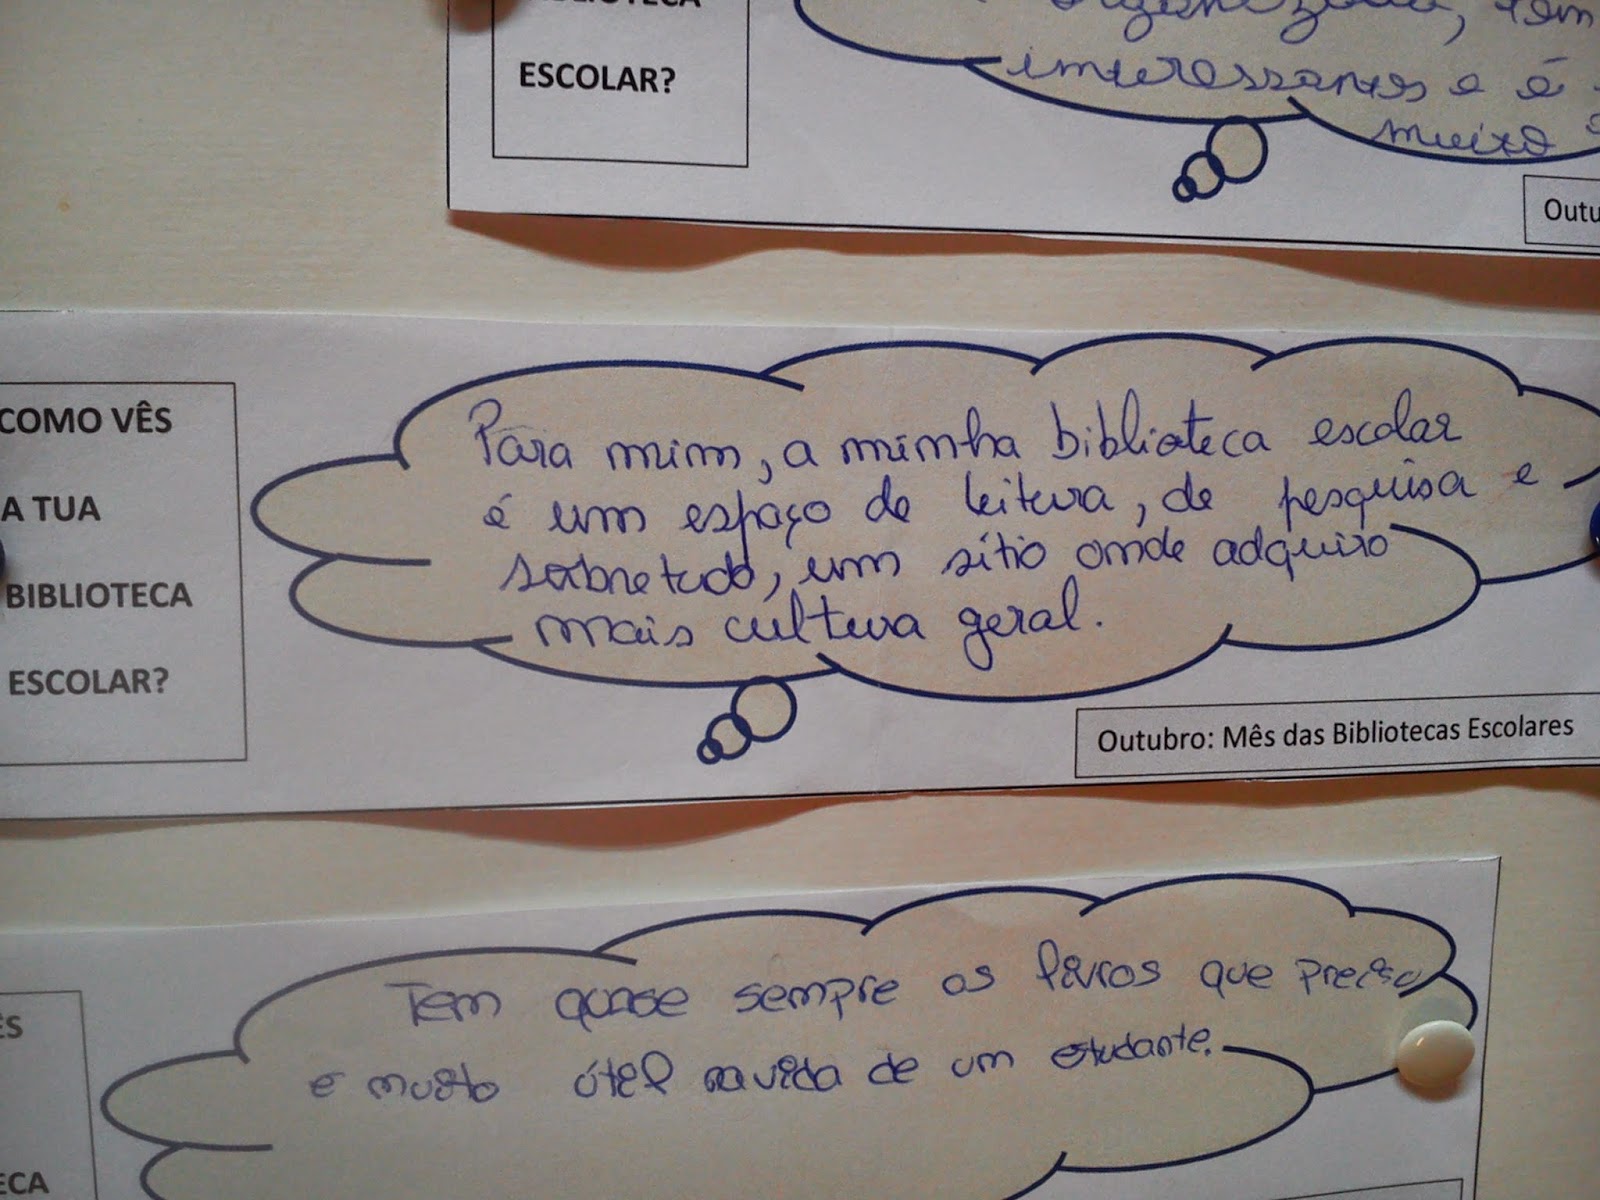 ESCOLAR?
interessantes e é
muito
Outu
COMO VÊS
A TUA
BIBLIOTECA
ESCOLAR?
Para mim, a minha biblioteca escolar
é um espaço de leitura, de pesquisa e
sobretudo, um sítio onde adquiro
mais cultura geral.
Outubro: Mês das Bibliotecas Escolares
Tem quase sempre os livros que preciso
e muito útil na vida de um estudante.
ÊS
ECA